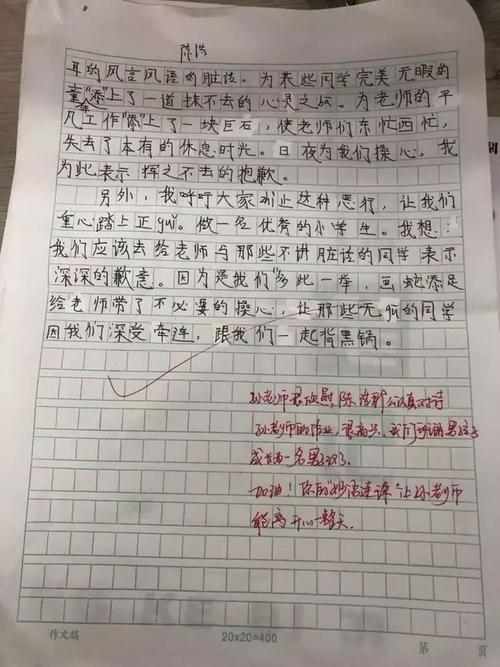 陈浩
耳的风言风语的脏话。为某些同学完美无暇的
童年“添”上了一道抹不去的心灵之灰。为老师的平
凡工作“添”上了一块巨石，使老师们东忙西忙，
失去了本有的休息时光。日夜为我们操心，我
为此表示挥之不去的抱歉。
另外，我呼吁大家制止这种恶行，让我们
重心踏上正guǐ。做一名优秀的小学生。我想：
我们应该去给老师与那些不讲脏话的同学表示
深深的歉意。因为是我们“多此一举，画蛇添足
给老师带了不必要的操心，让那些无gū的同学
因我们深受牵连，跟我们一起背黑锅。
孙老师很欣慰，陈浩认真对待
孙老师的作业，很高兴，我们班的男孩子
成长为一名男子汉了。
加油！你的“妙语连珠”让孙老师
能开心一整天。
作文稿
20×20=400
第 页